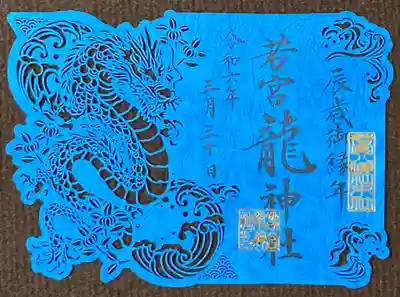 辰歳御縁年
若宮龍神社
令和六年
三月三十日